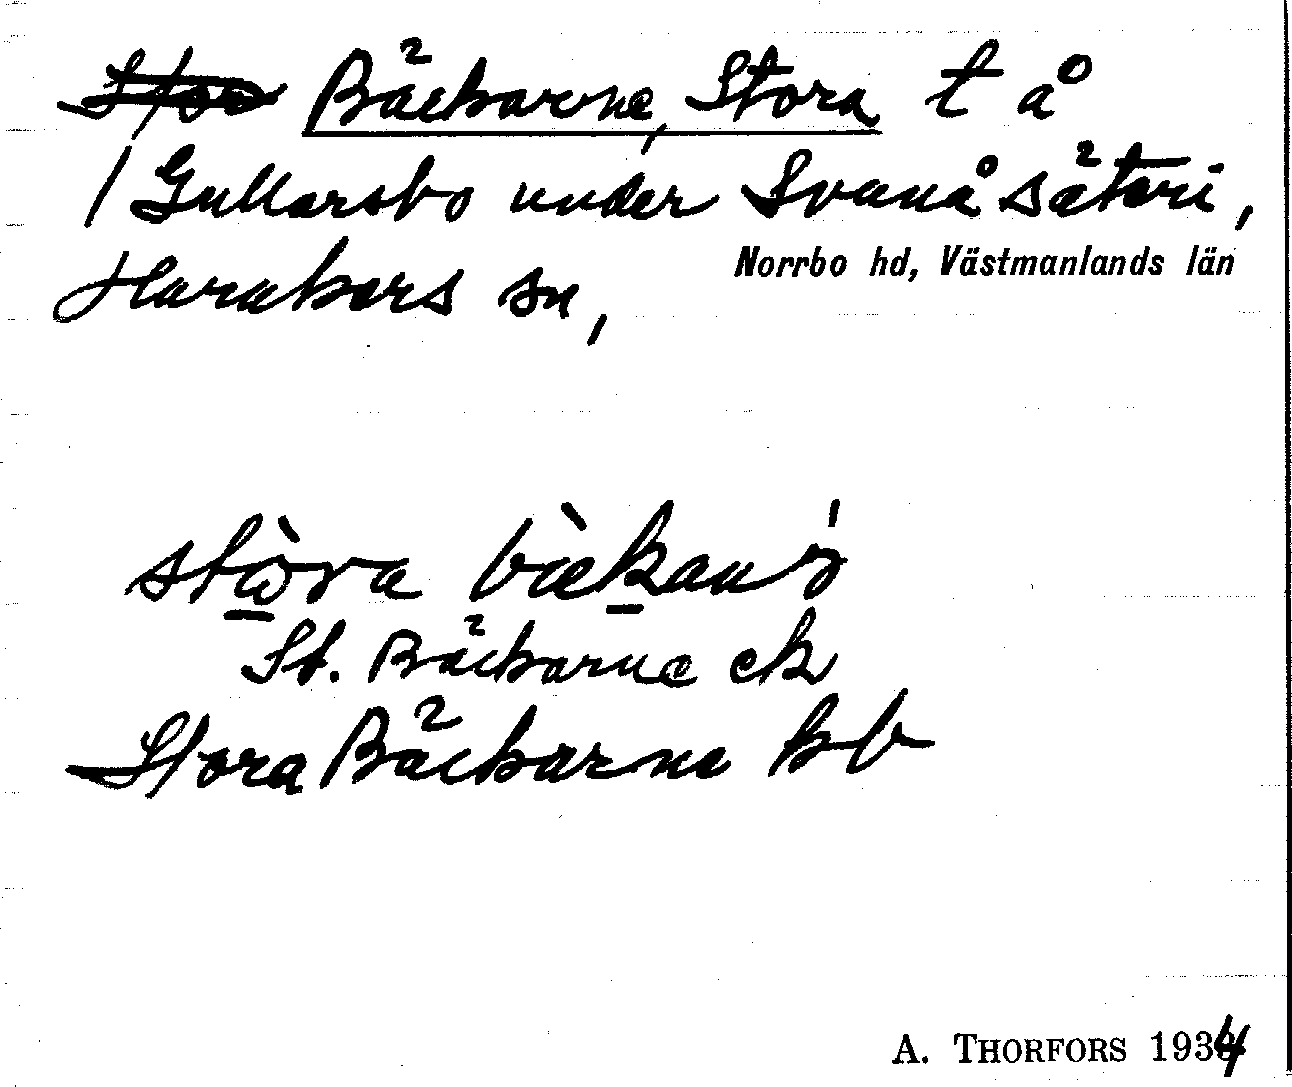 Bäckarne, Stora t å
/ Gullarsbo under Svanå säteri,
Harakers sn,
Norrbo hd, Västmanlands län
stòra
St. Bäckarne ek
Stora Bäckarne kb
A. THORFORS 1934